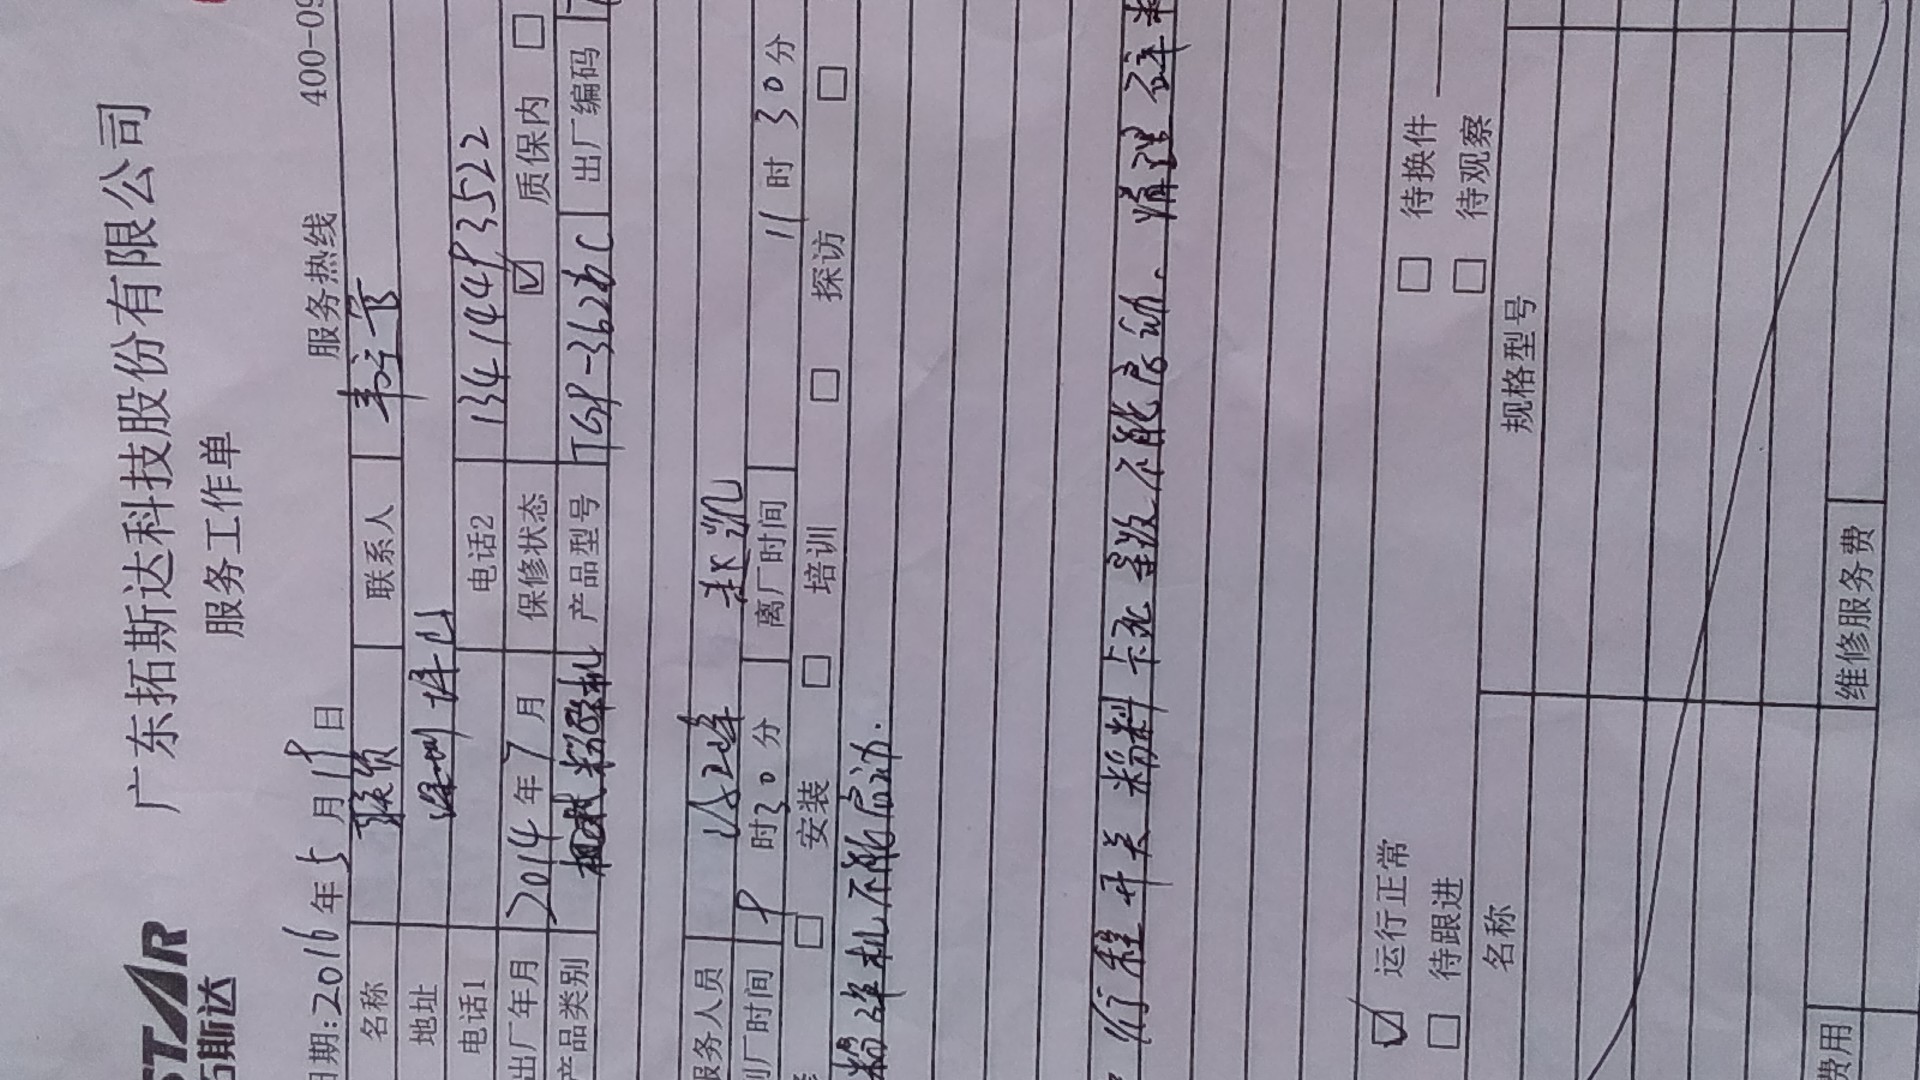 STAR
拓斯达
广东拓斯达科技股份有限公司
服务工作单
日期:2016年5月18日 服务热线 400-09
名称 联系人
地址 深圳坪山
电话1 电话2 13414483522
出厂年月 2014年7月 保修状态 ☑ 质保内 □
产品类别 机械式粉碎机 产品型号 TGP-3626C 出厂编码
服务人员
到厂时间 8时30分 离厂时间 11时30分
□ 安装 □ 培训 □ 探访 □
粉碎机不能启动.
行程开关粉料卡死导致不能启动.清理碎料
☑ 运行正常 □ 待换件
□ 待跟进 □ 待观察
名称 规格型号
费用 维修服务费